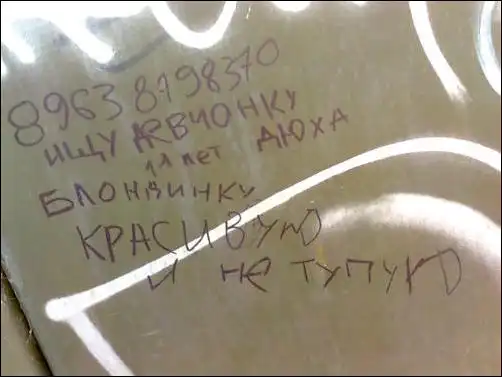 89638198370
ИЩУ ДЕВЧОНКУ
11 лет ДЮХА
БЛОНДИНКУ
КРАСИВУЮ
И НЕ ТУПУЮ